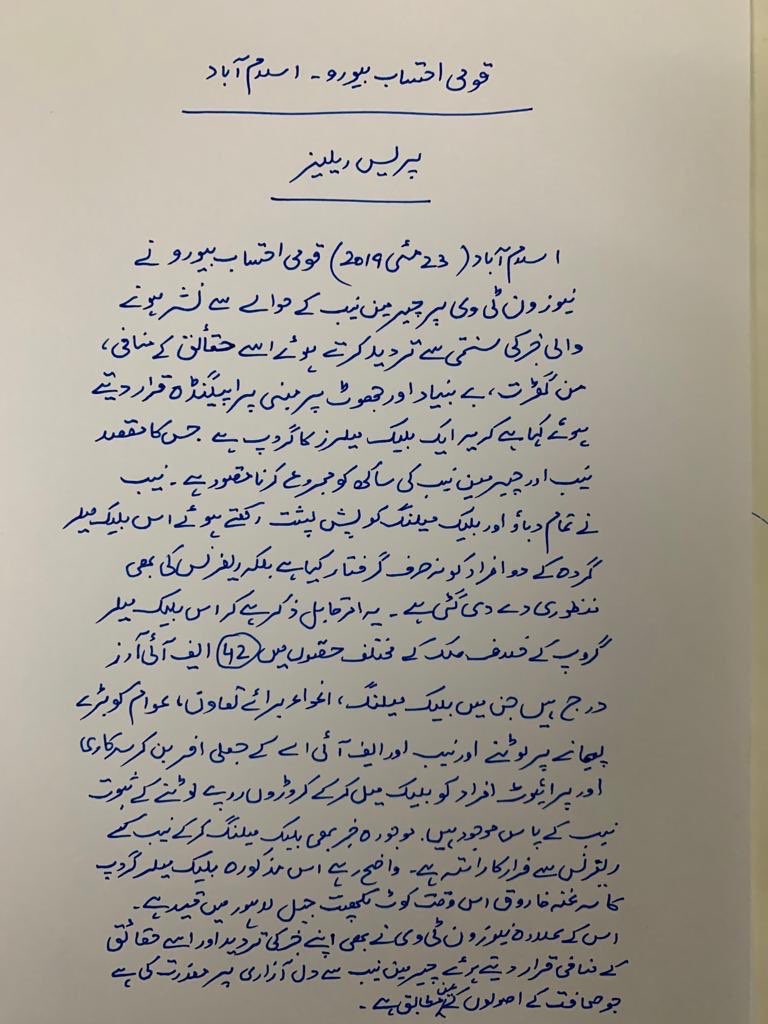 قومی احتساب بیورو۔ اسلام آباد
پریس ریلیز
اسلام آباد (23 مئی 2019) قومی احتساب بیورو نے
نیوز ون ٹی وی پر چیرمین نیب کے حوالے سے نشر ہونے
والی خبر کی سختی سے تردید کرتے ہوئے اسے حقائق کے منافی،
من گھڑت، بے بنیاد اور جھوٹ پر مبنی پراپیگنڈہ قرار دیتے
ہوئے کہا ہے کہ یہ ایک بلیک میلرز کا گروپ ہے جس کا مقصد
نیب اور چیرمین نیب کی ساکھ کو مجروع کرنا مقصود ہے۔ نیب
نے تمام دباؤ اور بلیک میلنگ کو پش پشت رکھتے ہوئے اس بلیک میلر
گروہ کے دو افراد کو نہ صرف گرفتار کیا ہے بلکہ ریفرنس کی بھی
منظوری دے دی گئی ہے۔ یہ امر قابل ذکر ہے کہ اس بلیک میلر
گروپ کے خلاف ملک کے مختلف حصوں میں 42 ایف آئی آرز
درج ہیں جن میں بلیک میلنگ، اغواء برائے تعاون، عوام کو بڑے
پیمانے پر لوٹنے اور نیب اور ایف آئی اے کے جعلی افسر بن کر سرکاری
اور پرائیوٹ افراد کو بلیک میل کر کے کروڑوں روپے لوٹنے کے ثبوت
نیب کے پاس موجود ہیں۔ موجودہ خبر بھی بلیک میلنگ کر کے نیب کے
ریفرنس سے فرار کا راستہ ہے۔ واضح رہے اس مذکورہ بلیک میلر گروپ
کا سرغنہ فاروق اس وقت کوٹ لکھپت جیل لاہور میں قید ہے۔
اس کے علاوہ نیوز ون ٹی وی نے بھی اپنے خبر کی تردید اور اسے حقائق
کے منافی قرار دیتے ہوئے چیرمین نیب سے دل آزاری پر معذرت کی ہے
جو صحافت کے اصولوں کے عین مطابق ہے۔